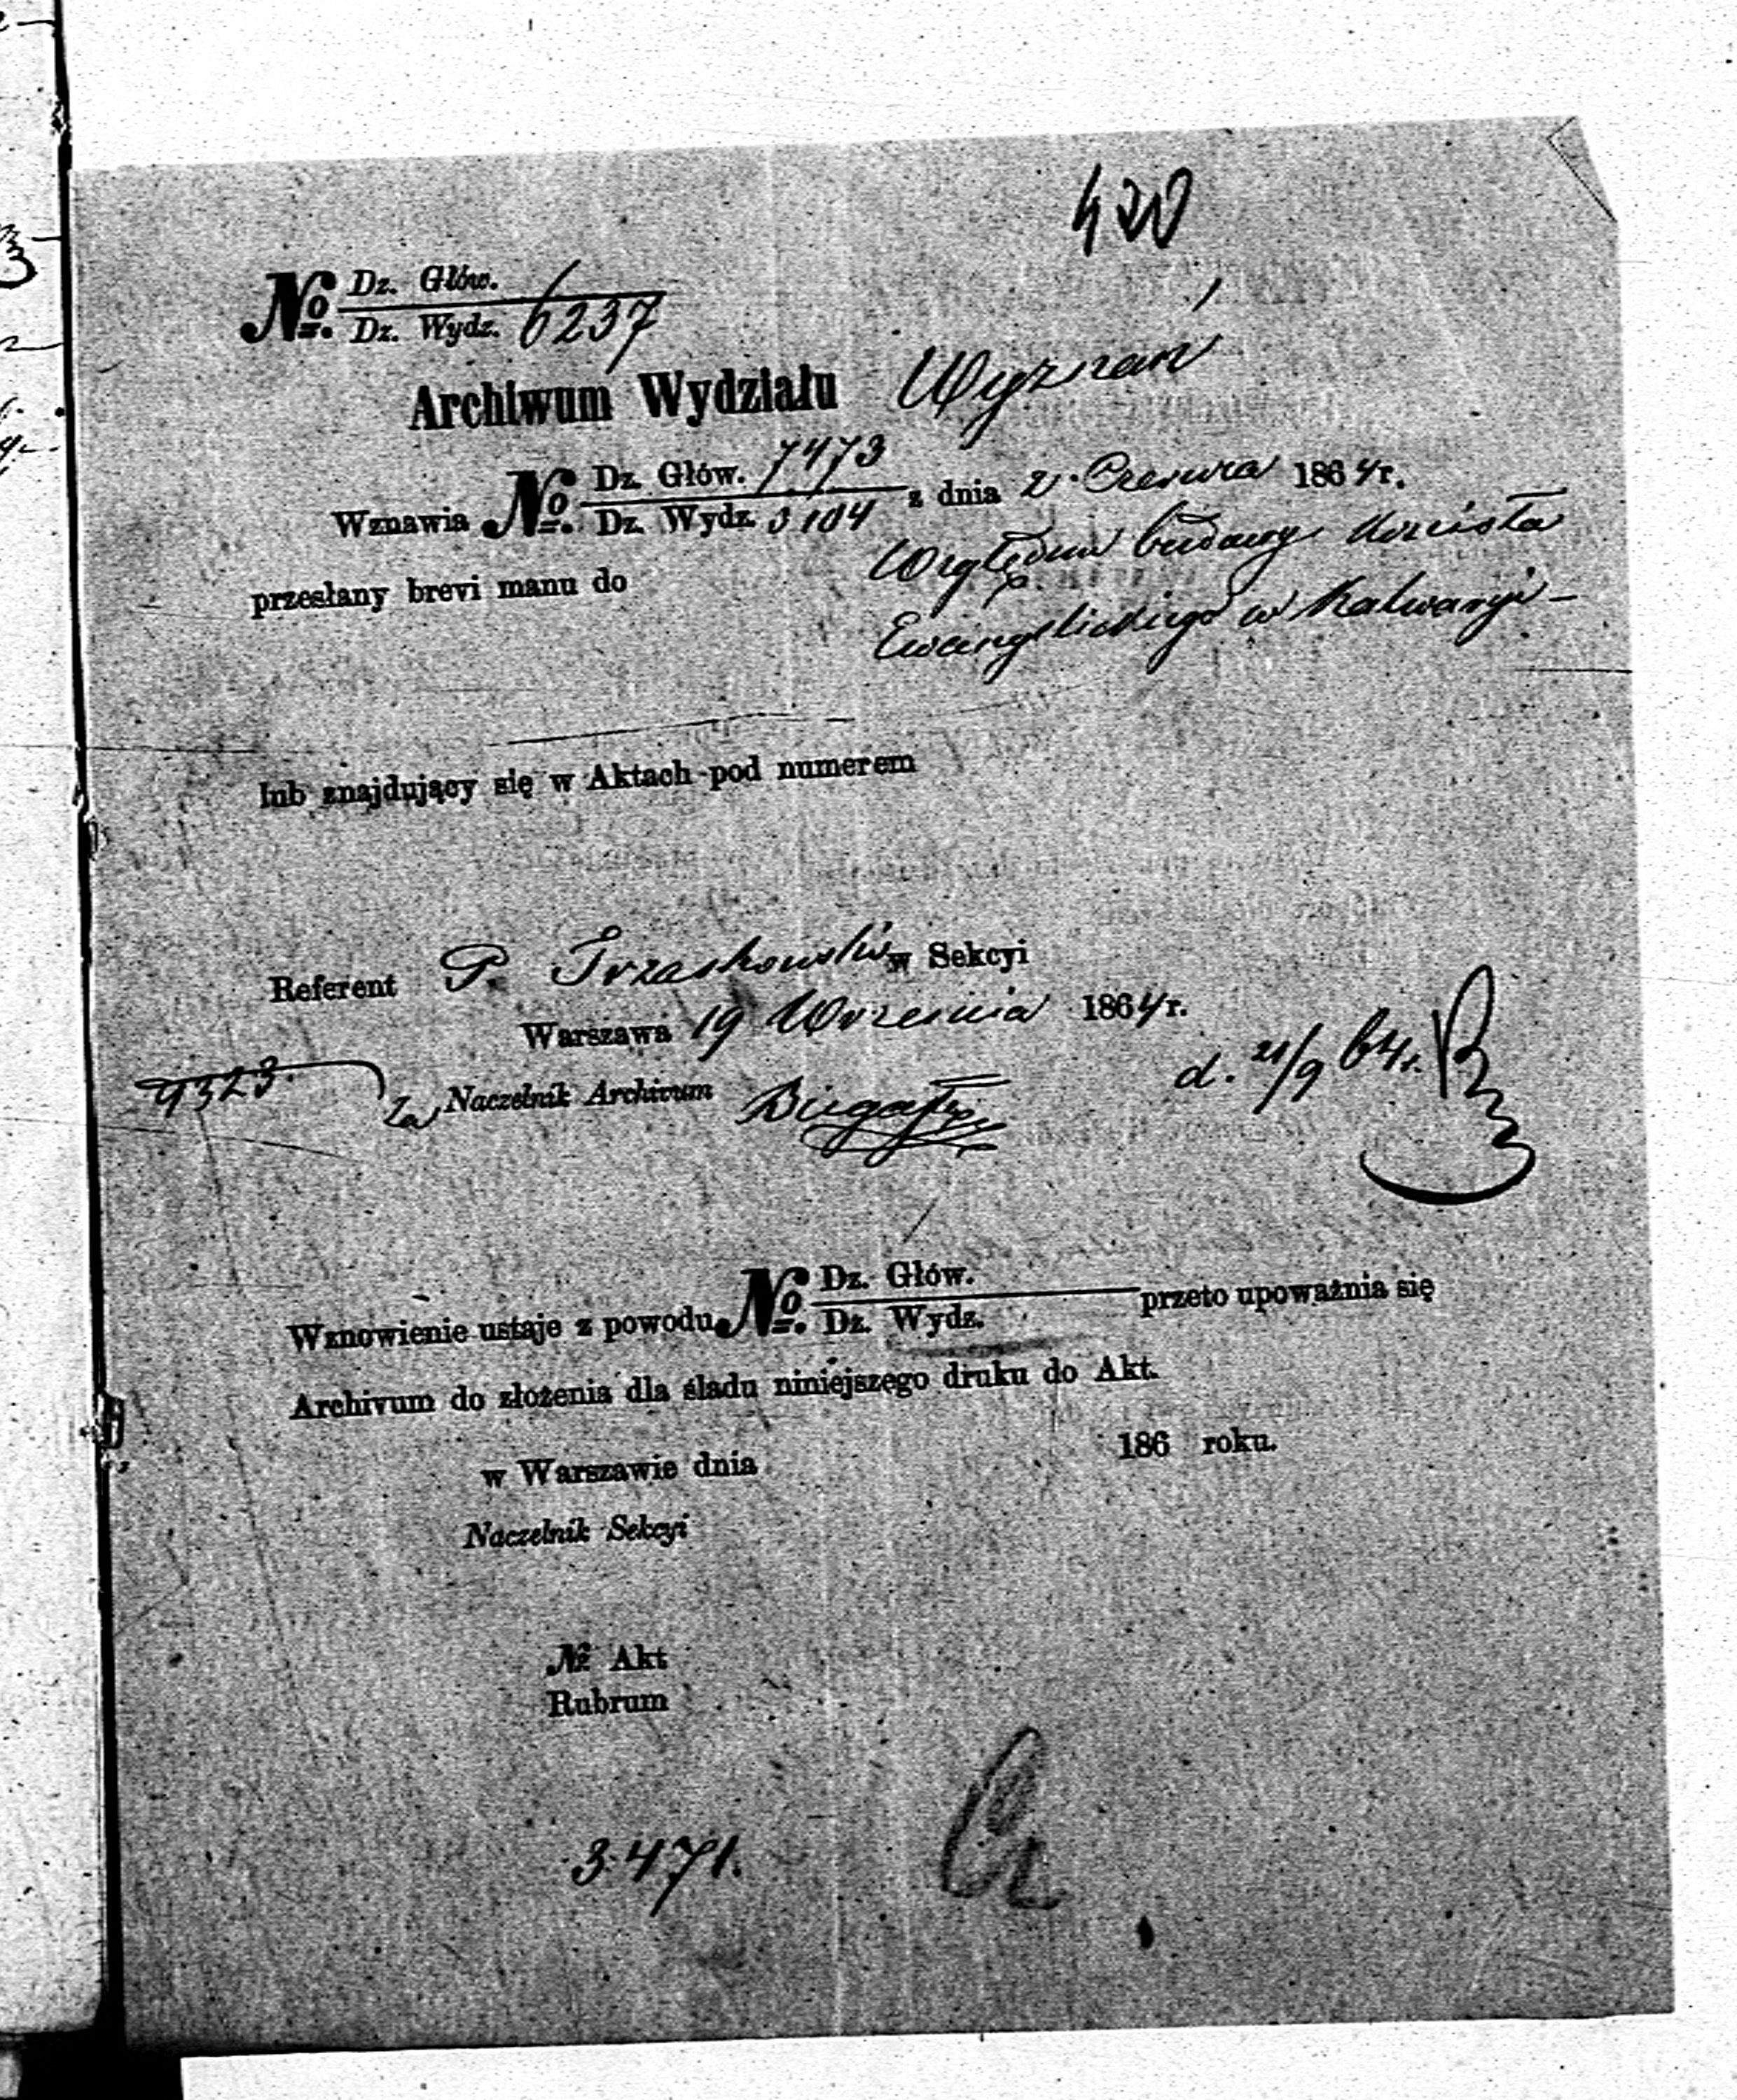 420
№ Dz. Głów.
Dz. Wydz. 6237
Archiwum Wydziału Wyznań
Wznawia № Dz. Głów. 7473 z dnia Czerwca 1864 r.
Dz. Wydz. 3104
przesłany brevi manu do
Względem budowy Kościoła
Ewangelickiego w Kalwaryi
lub znajdujący się w Aktach pod numerem
Referent P. Trzaskowski w Sekcyi
Warszawa 19 Września 1864 r.
9323
za Naczelnik Archivum
d. 21/9 64 r.
Wznowienie ustaje z powodu № Dz. Głów. przeto upoważnia się
Dz. Wydz.
Archivum do złożenia dla śladu niniejszego druku do Akt.
w Warszawie dnia 186 roku.
Naczelnik Sekcyi
№ Akt
Rubrum
3471.